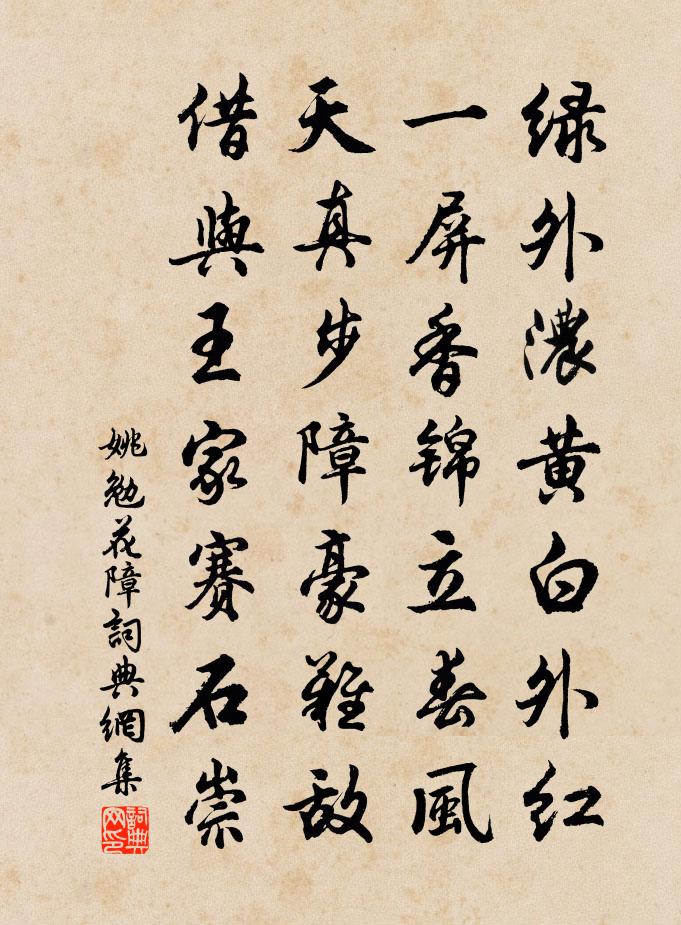 绿外濃黄白外红
一屏香锦立春風
天真步障豪難敌
借與王家赛石崇
姚勉花障詞典網集
詞典网印